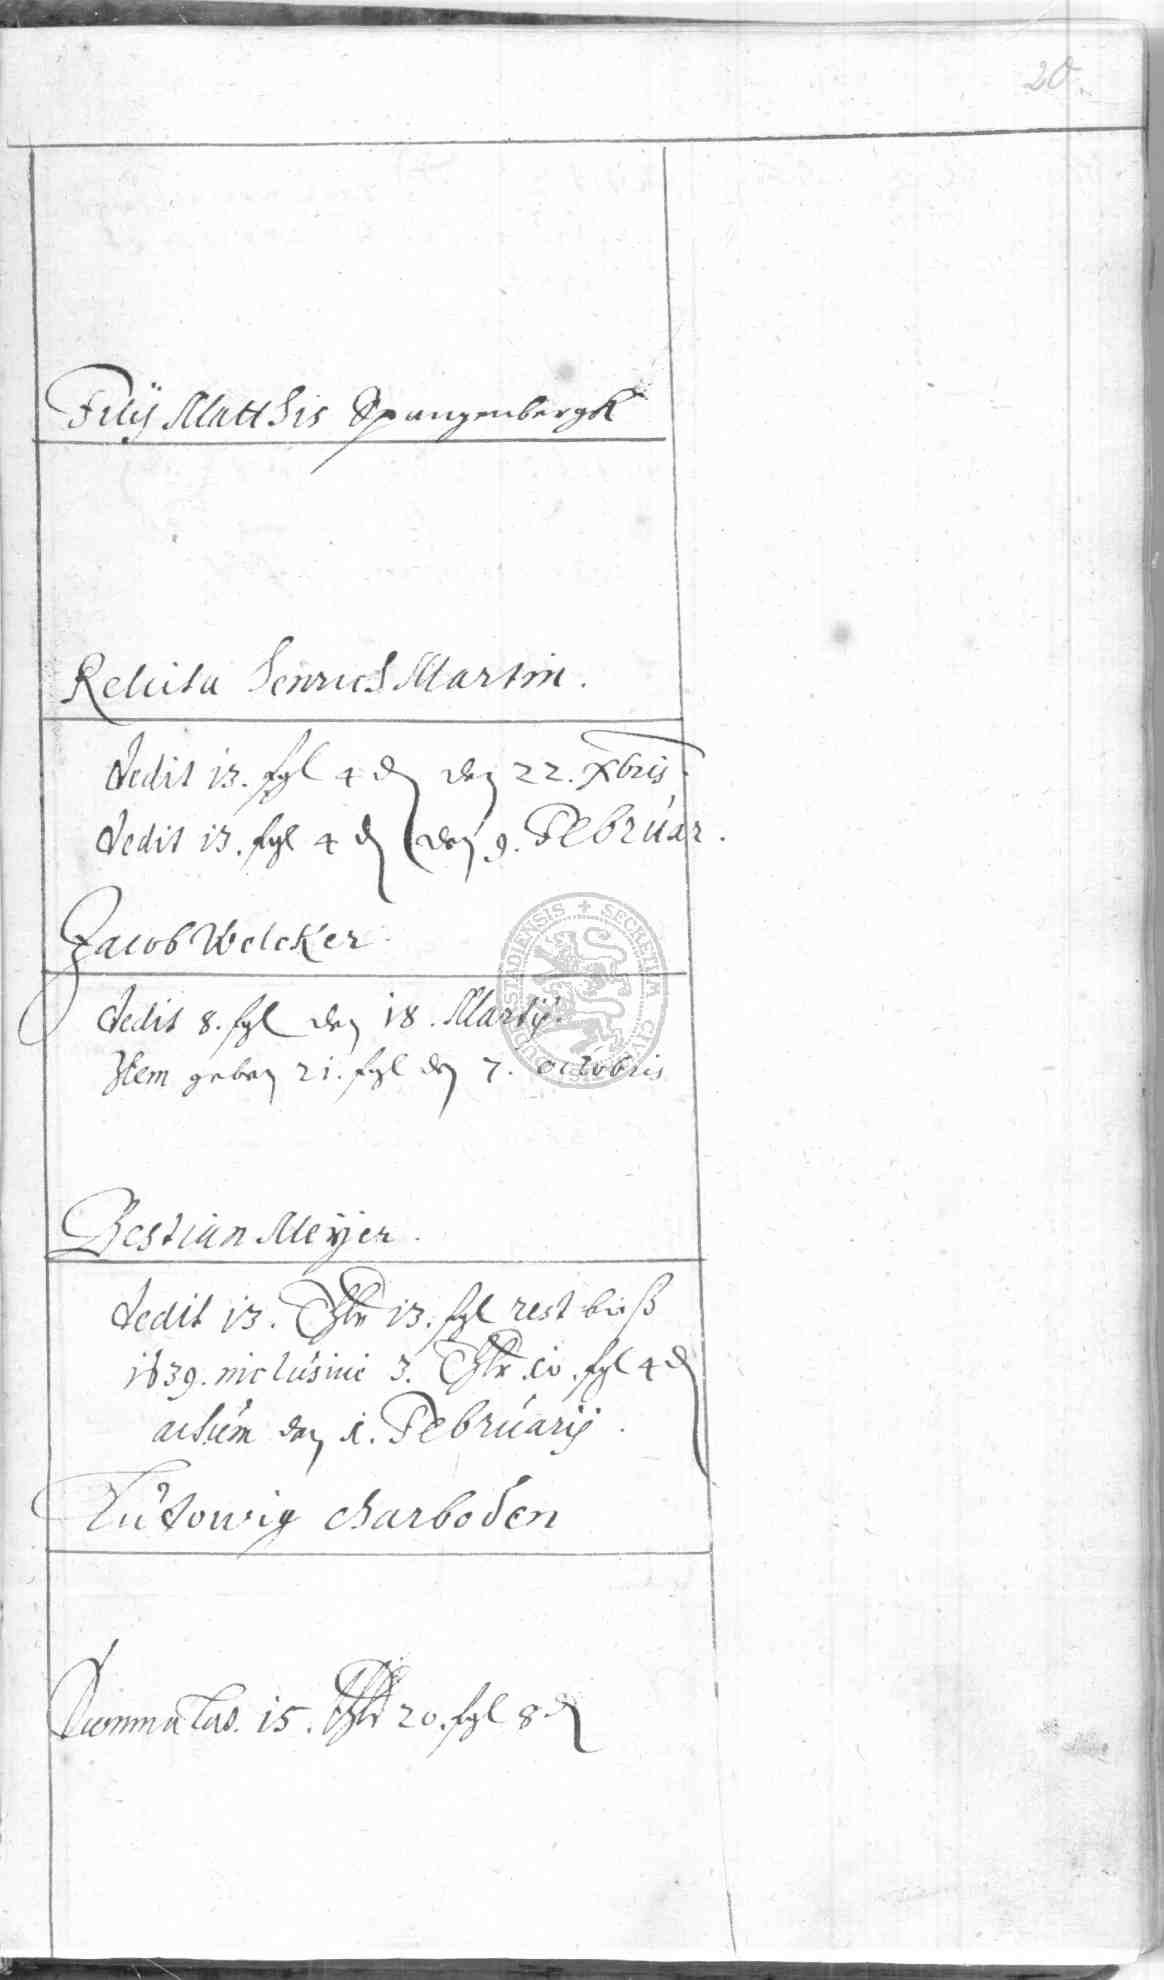 20.
Filij Matthis Spangenbergk
Relicta Henrich Martin.
dedit 13. ßgl 4 ₰ den 22. Xbris.
dedit 13. ßgl 4 ₰ den 9. Februar.
Jacob Welcker.
dedit 8. ßgl den 18. Martij.
Item geben 21. ßgl den 7. octobris
SECRETUM CIVIUM DUDERSTADIENSIS
Bestian Meyer.
dedit 13. Thlr 13. ßgl rest bieß
1639. inclusive 3. Thlr 10. ßgl 4 ₰
actum den 1. Februarij.
Ludowig charboden
Summa Lat. 15. Thlr 20. ßgl 8 ₰